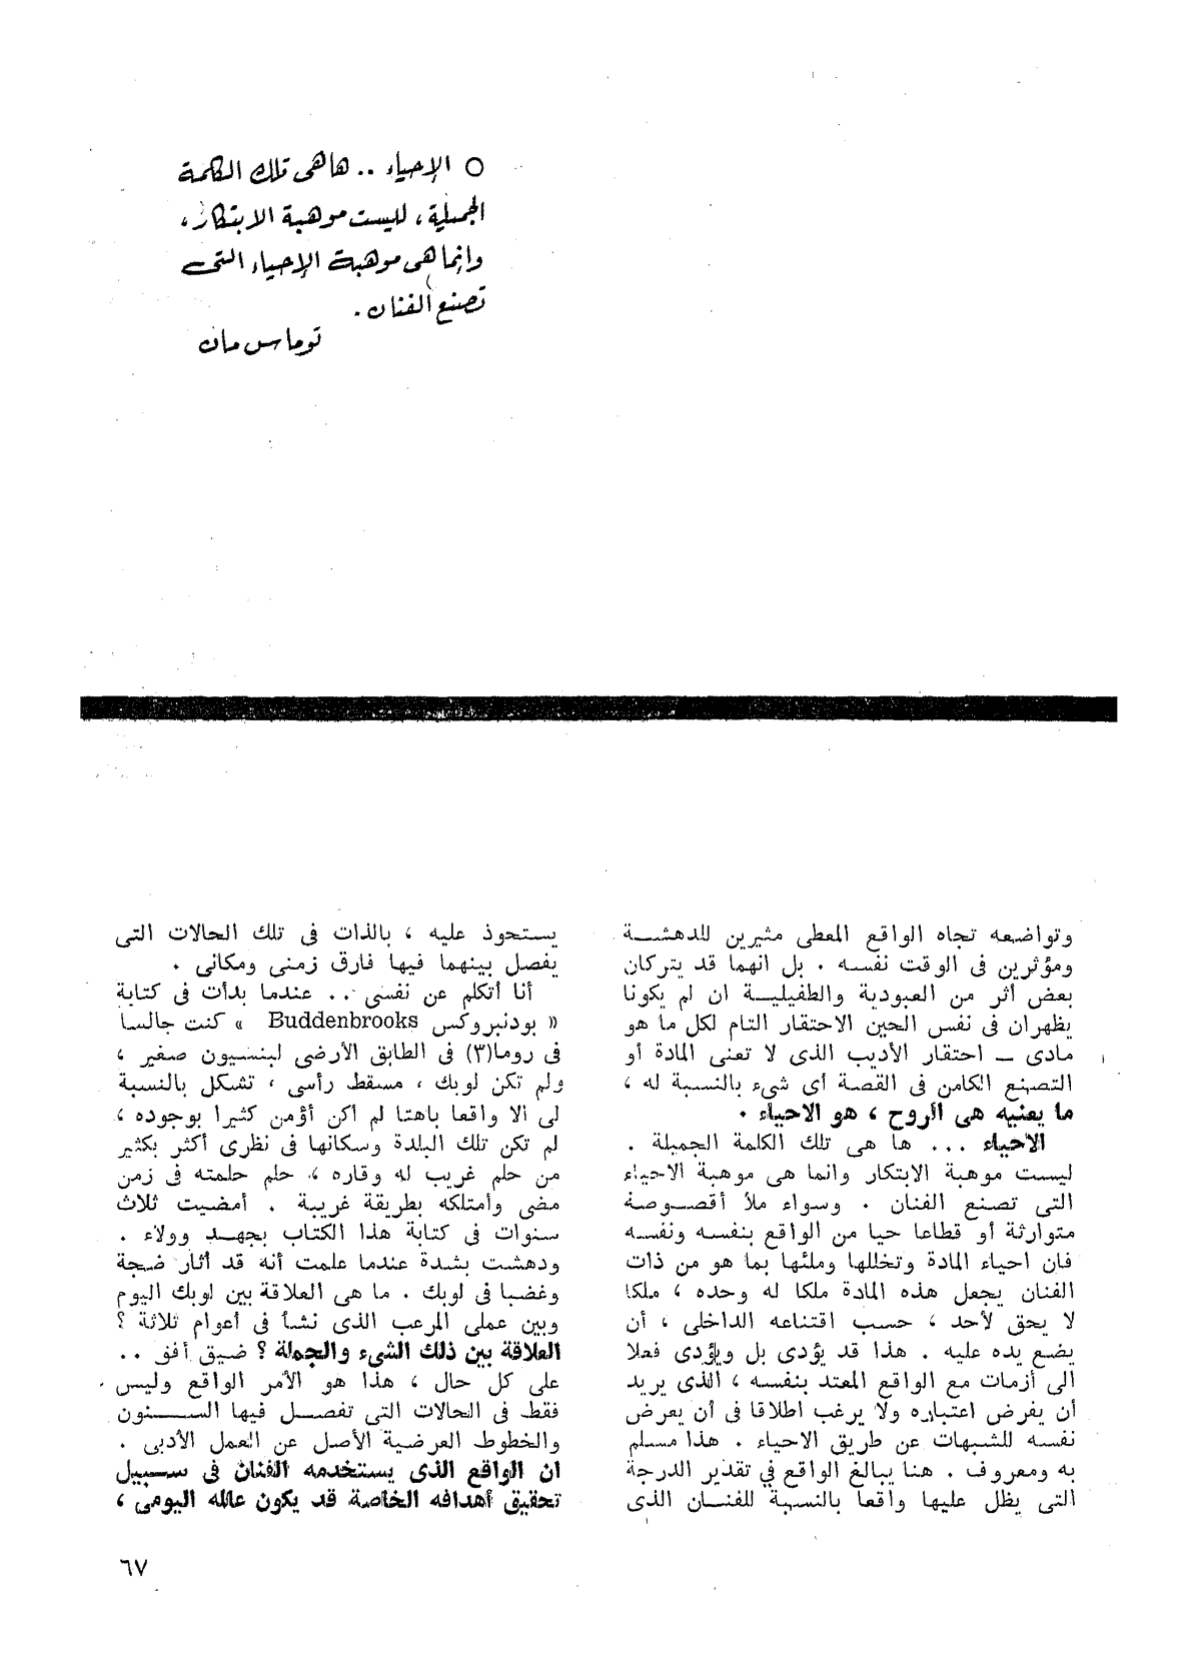 ○ الإحياء .. هاهى تلك الكلمة
الجميلة ، ليست موهبة الابتكار ،
وإنما هى موهبة الإحياء التى
تصنع الفنان .
توماس مان
وتواضعه تجاه الواقع المعطى مثيرين للدهشــة
ومؤثرين فى الوقت نفسه . بل انهما قد يتركان
بعض أثر من العبودية والطفيليـة ان لم يكونا
يظهران فى نفس الحين الاحتقار التام لكل ما هو
مادى ــ احتقار الأديب الذى لا تعنى المادة أو
التصنع الكامن فى القصة أى شىء بالنسبة له ،
ما يعنيه هى الروح ، هو الاحياء .
الاحياء ... ها هى تلك الكلمة الجميلة .
ليست موهبة الابتكار وانما هى موهبة الاحياء
التى تصنع الفنان . وسواء ملأ أقصـوصة
متوارثة أو قطاعا حيا من الواقع بنفسه ونفسه
فان احياء المادة وتخللها وملئها بما هو من ذات
الفنان يجعل هذه المادة ملكا له وحده ، ملكا
لا يحق لأحد ، حسب اقتناعه الداخلى ، أن
يضع يده عليه . هذا قد يؤدى بل ويؤدى فعلا
الى أزمات مع الواقع المعتد بنفسه ، الذى يريد
أن يفرض اعتباره ولا يرغب اطلاقا فى أن يعرض
نفسه للشبهات عن طريق الاحياء . هذا مسلم
به ومعروف . هنا يبالغ الواقع في تقدير الدرجة
التى يظل عليها واقعا بالنسبة للفنـان الذى
يستحوذ عليه ، بالذات فى تلك الحالات التى
يفصل بينهما فيها فارق زمنى ومكانى .
أنا أتكلم عن نفسى .. عندما بدأت فى كتابة
« بودنبروكس Buddenbrooks » كنت جالسا
فى روما(٣) فى الطابق الأرضى لبنسيون صغير ،
ولم تكن لوبك ، مسقط رأسى ، تشكل بالنسبة
لى الا واقعا باهتا لم اكن أؤمن كثيرا بوجوده ،
لم تكن تلك البلدة وسكانها فى نظرى أكثر بكثير
من حلم غريب له وقاره ، حلم حلمته فى زمن
مضى وأمتلكه بطريقة غريبة . أمضيت ثلاث
سنوات فى كتابة هذا الكتاب بجهـد وولاء .
ودهشت بشدة عندما علمت أنه قد أثار ضجة
وغضبا فى لوبك . ما هى العلاقة بين لوبك اليوم
وبين عملى المرعب الذى نشأ فى أعوام ثلاثة ؟
العلاقة بين ذلك الشىء والجملة ؟ ضيق أفق ..
على كل حال ، هذا هو الأمر الواقع وليس
فقط فى الحالات التى تفصـل فيها الســنون
والخطوط العرضية الأصل عن العمل الأدبى .
ان الواقع الذى يستخدمه الفنان فى سـبيل
تحقيق أهدافه الخاصة قد يكون عالمه اليومى ،
٦٧